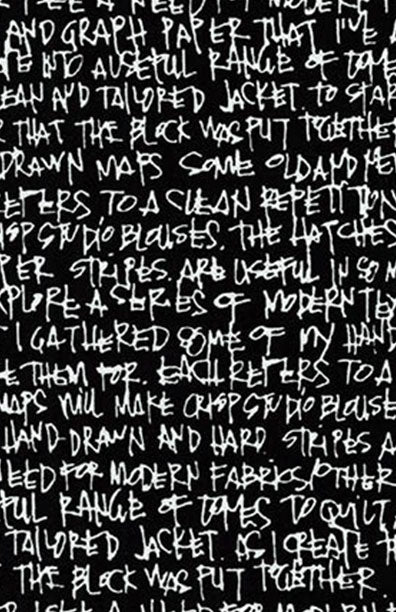 SEE A NEED MODERN
AND GRAPH PAPER THAT I'VE
INTO A USEFUL RANGE OF TONE
EAN AND TAILORED JACKET. TO STAR
THAT THE BLOCK WAS PUT TOGETHE
DRAWN MAPS SOME OLD AND NE
EFERS TO A CLEAN REPETITION
SP STUDIO BLOUSES. THE HATCHES
PER STRIPES. ARE USEFUL IN SO M
XPLORE A SERIES OF MODERN TEX
I GATHERED SOME OF MY HAND
E THEM FOR. EACH REFERS TO A
MAPS WILL MAKE CRISP STUDIO BLOUSE
HAND-DRAWN AND HARD. STRIPES A
NEED FOR MODERN FABRICS/OTHER
FUL RANGE OF TONES TO QUILT
TAILORED JACKET. AS I CREATE
THE BLOCK WAS PUT TOGETHER
I SEE A NEED